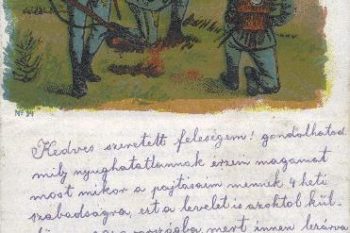 No 24
Kedves szeretett feleségem! gondolhatod
mily nyughatatlannak érzem magamat
most mikor a pajtásaim mennek 4 heti
szabadságra, ezt a levelet is azoktól kül-
mert innen lezárva